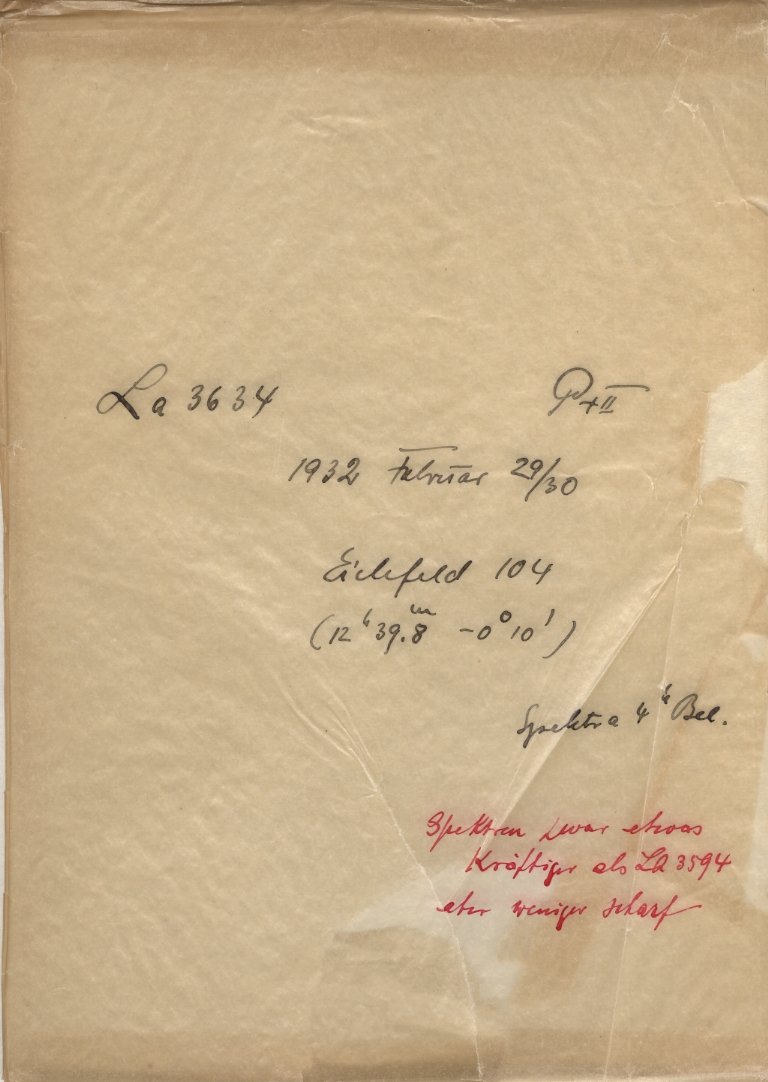 La 3634 P+II
1932 Februar 29/30
Eichfeld 104
(12h 39.8m -0° 10')
Spektra 4h Bel.
Spektren zwar etwas
Kräftiger als La 3594
aber weniger scharf